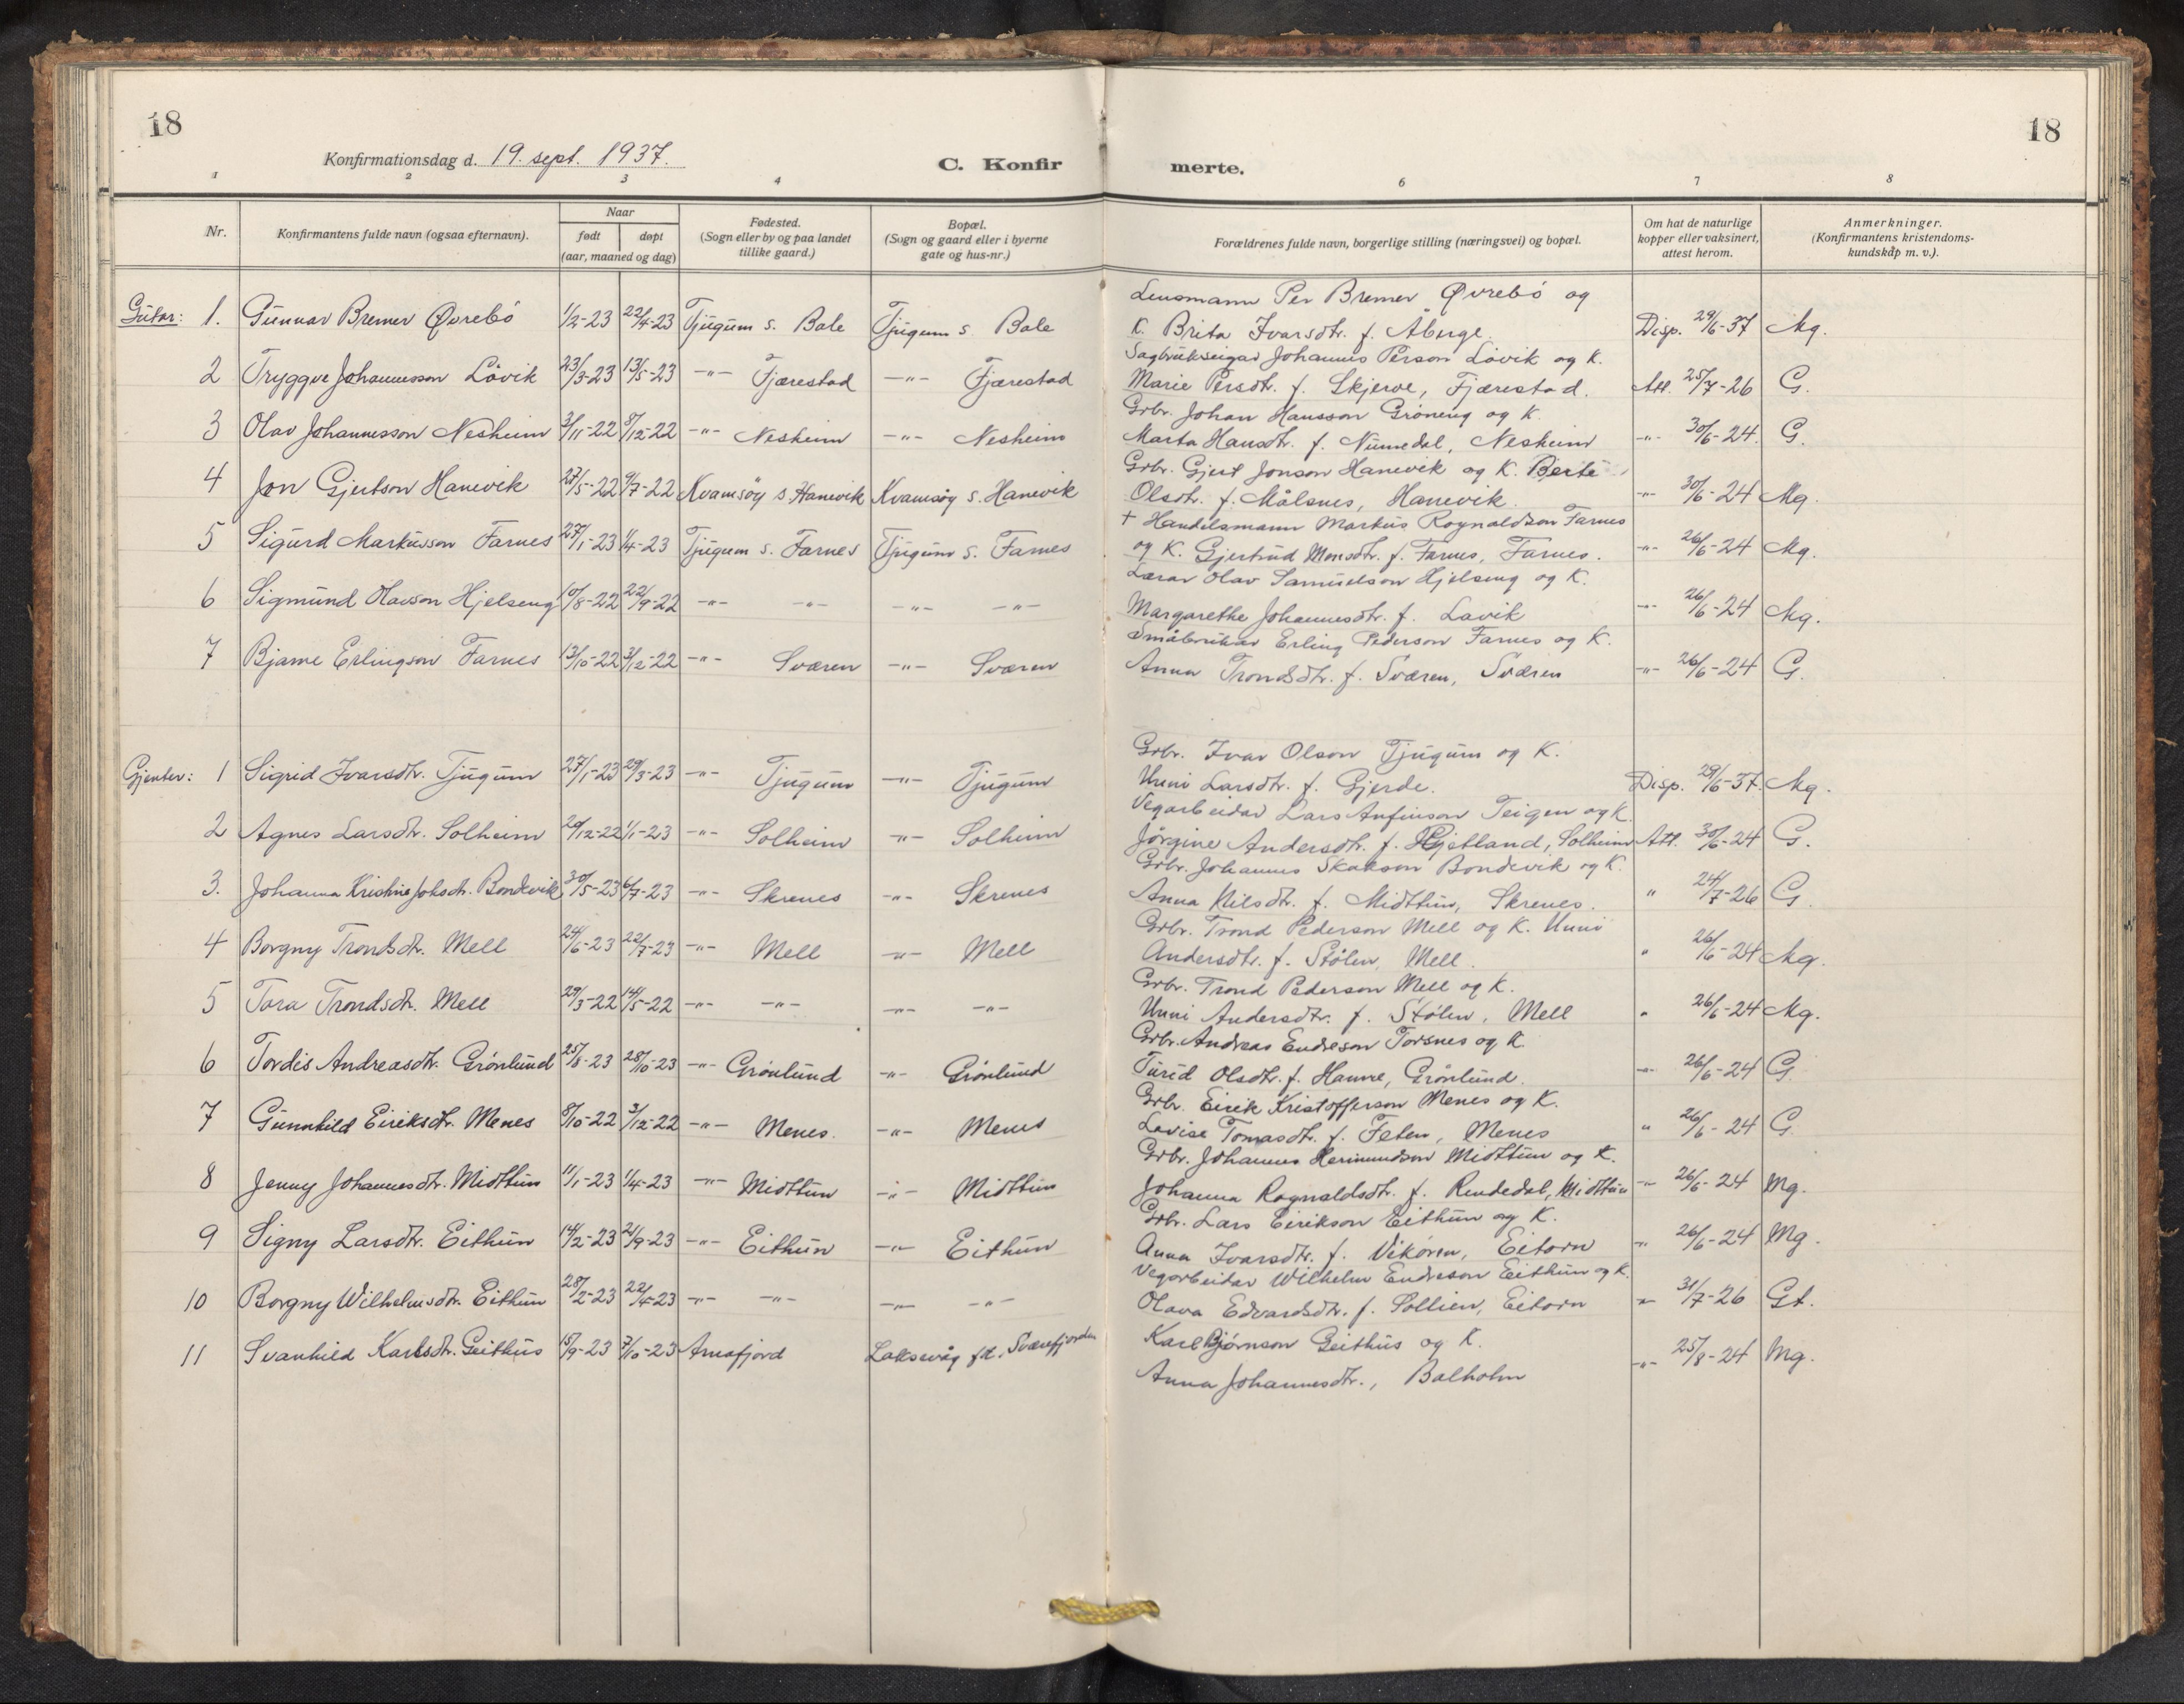 18
18
Konfirmationsdag d. 19. sept. 1937.
C. Konfir
merte.
1 2 3 4 6 7 8
Nr.
Konfirmantens fulde navn (ogsaa efternavn).
Naar
født døpt
(aar, maaned og dag)
Fødested.
(Sogn eller by og paa landet
tillike gaard.)
Bopæl.
(Sogn og gaard eller i byerne
gate og hus-nr.)
Forældrenes fulde navn, borgerlige stilling (næringsvei) og bopæl.
Om hat de naturlige
kopper eller vaksinert,
attest herom.
Anmerkninger.
(Konfirmantens kristendoms-
kundskap m. v.).
Lensmann Per Bremer Øvrebö og
Gutar: 1. Gunnar Bremer Øvrebö 1/2-23 22/4-23 Tjugum s. Bale Tjugum s. Bale K. Brita Ivarsdtr. f. Åberge. Disp. 29/6-37 Mg.
Sagbrukseigar Johannes Person Lövik og K.
2 Tryggve Johannesson Lövik 23/3-23 13/5-23 -"- Fjærestad -"- Fjærestad Marie Persdtr. f. Skjerve, Fjærestad. Att. 25/7-26 G.
Grbr. Johan Hansson Gröneng og K.
3 Olav Johannesson Nesheim 3/11-22 8/12-22 -"- Nesheim -"- Nesheim Marta Hansdtr. f. Numedal, Nesheim -"- 30/6-24. G.
Grbr. Gjert Jonson Hanevik og K. Berte
4 Jon Gjertson Hanevik 27/5-22 9/7-22 Kvamsöy s. Hanevik Kvamsöy s. Hanevik Olsdtr. f. Målsnes, Hanevik. -"- 30/6-24 Mg.
+ Handelsmann Markus Rognaldson Farnes
5 Sigurd Markusson Farnes 27/1-23 1/4-23 Tjugum s. Farnes Tjugum s. Farnes og K. Gjertrud Monsdtr. f. Farnes, Farnes. -"- 26/6-24 Mg.
Lærar Olav Samuelson Hjelseng og K.
6 Sigmund Olavson Hjelseng 10/8-22 22/9-22 -"- -"- -"- -"- Margarethe Johannesdtr. f. Lavik -"- 26/6-24 Mg.
Småbrukar Erling Pederson Farnes og K.
7 Bjarne Erlingson Farnes 13/10-22 3/12-22 -"- Sværen -"- Sværen Anna Trondsdtr. f. Sværen, Sværen -"- 26/6-24 G.
Grbr. Ivar Olson Tjugum og K.
Gjenter: 1 Sigrid Ivarsdtr. Tjugum 27/1-23 29/3-23 -"- Tjugum -"- Tjugum Unni Larsdtr. f. Gjerde. Disp. 29/6-37. Mg.
Vegarbeidar Lars Anfinson Teigen og K.
2 Agnes Larsdtr. Solheim 20/12-22 1/1-23 -"- Solheim -"- Solheim Jörgine Andersdtr. f. Hjetland, Solheim Att. 30/6-24 G.
Grbr. Johannes Skakson Bondevik og K.
3. Johanna Kristine Johsdtr. Bondevik 30/5-23 6/7-23 -"- Skrenes -"- Skrenes Anna Nilsdtr. f. Midttun, Skrenes. " 24/7-26 G.
Grbr. Trond Pederson Mell og K. Unni
4 Borgny Trondsdtr. Mell 24/6-23 22/7-23 -"- Mell -"- Mell Andersdtr. f. Stölen, Mell. " 26/6-24 Mg.
Grbr. Trond Pederson Mell og K.
5 Tora Trondsdtr. Mell 29/3-22 14/5-22 -"- -"- -"- -"- Unni Andersdtr. f. Stölen, Mell " 26/6-24 Mg.
Grbr. Andreas Endreson Torsnes og K.
6 Tordis Andreasdtr. Grönlund 25/8-23 28/10-23 -"- Grönlund -"- Grönlund Turid Olsdtr. f. Hamre, Grönlund. -"- 26/6-24 G.
Grbr. Eirik Kristofferson Menes og K.
7 Gunnhild Eireksdtr. Menes 8/10-22 3/12-22 -"- Menes. -"- Menes Lovise Tomasdtr. f. Feten, Menes " 26/6-24 G.
Grbr. Johannes Hermundson Midttun og K.
8 Jenny Johannesdtr. Midttun 11/1-23 1/4-23 -"- Midttun -"- Midttun Johanna Rognaldsdtr. f. Rendedal, Midttun -"- 26/6-24 Mg.
Grbr. Lars Eirikson Eithun og K.
9 Signy Larsdtr. Eithun 14/2-23 2/9-23 -"- Eithun -"- Eithun Anna Ivarsdtr. f. Vikören, Eitorn -"- 26/6-24 Mg.
Vegarbeidar Wilhelm Endreson Eithun og K.
10 Borgny Wilhelmsdtr. Eithun 28/2-23 22/4-23 -"- -"- -"- -"- Olava Edvardsdtr. f. Sollien, Eitorn " 31/7-26 Gt.
11 Svanhild Karlsdtr. Geithus 15/9-23 7/10-23 Arnafjord Laksevåg fd. Sværefjorden Karl Bjørnson Geithus og K. -"- 25/8-24 Mg.
Anna Johannesdtr., Balholm